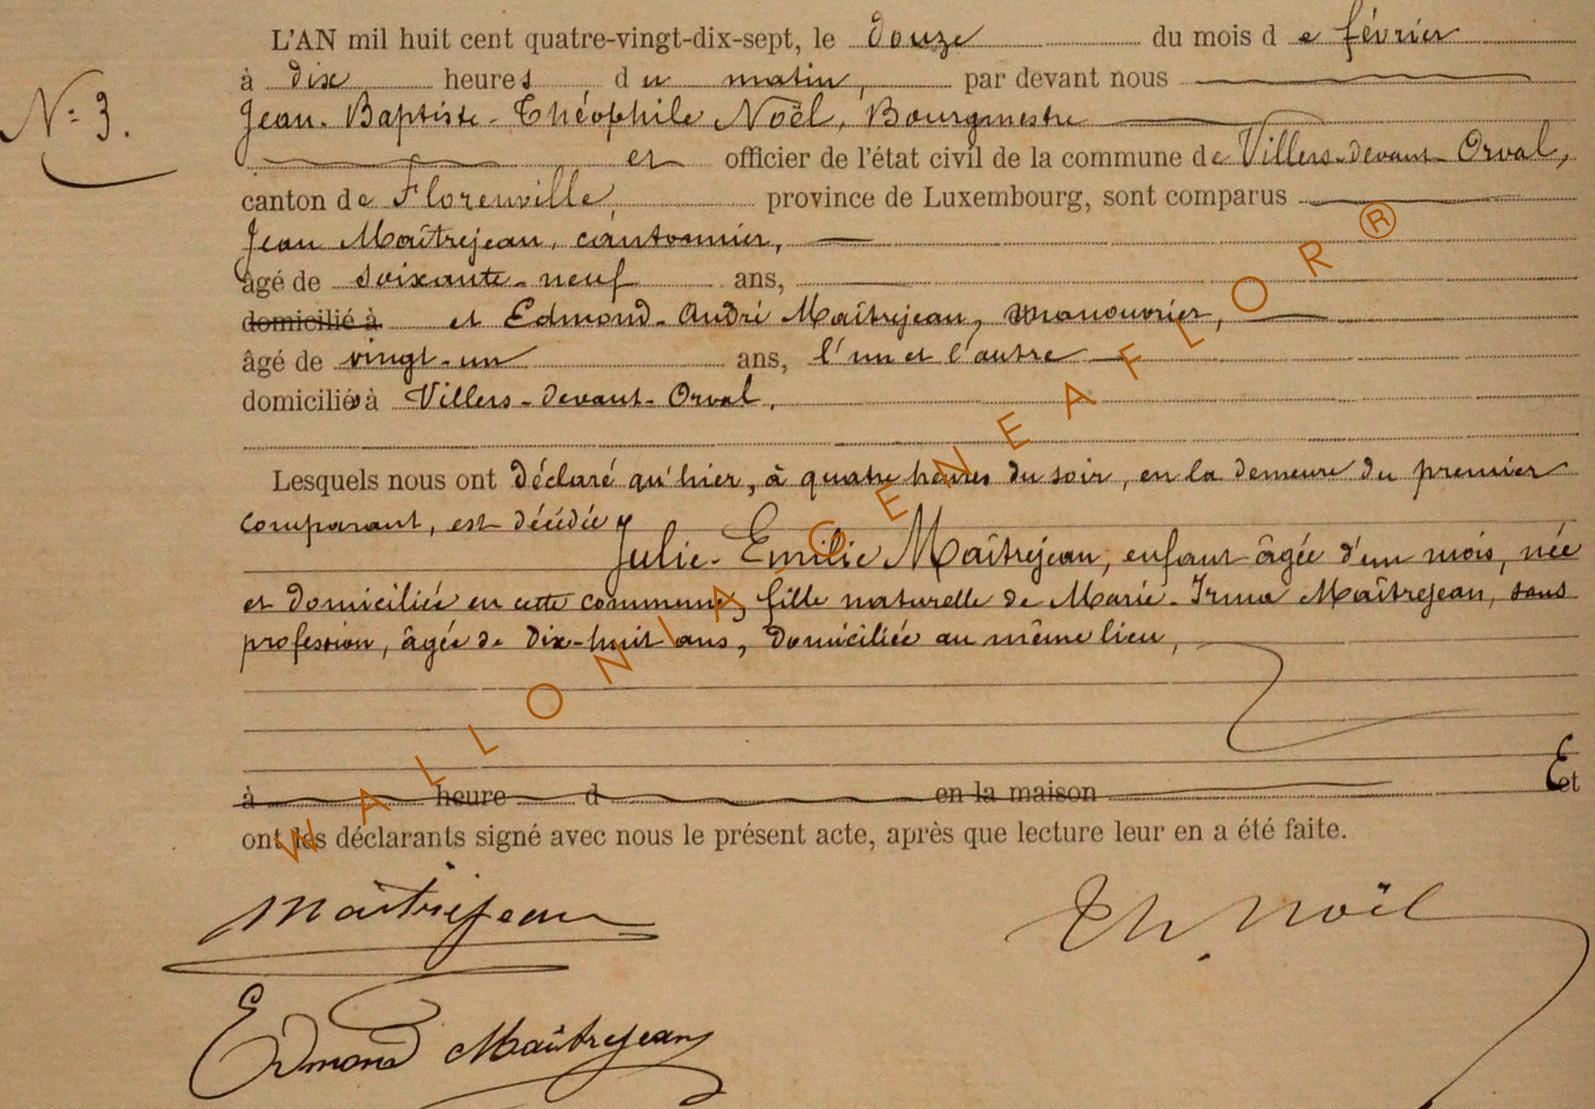 N° 3.
L'AN mil huit cent quatre-vingt-dix-sept, le douze du mois de février
à dix heures du matin, par devant nous
Jean-Baptiste-Théophile Noël, Bourgmestre
et officier de l'état civil de la commune de Villers-devant-Orval,
canton de Florenville, province de Luxembourg, sont comparus
Jean Maîtrejean, cantonnier,
âgé de soixante-neuf ans,
domicilié à et Edmond-André Maîtrejean, manouvrier,
âgé de vingt-un ans, l'un et l'autre
domiciliés à Villers-devant-Orval.
Lesquels nous ont déclaré qu'hier, à quatre heures du soir, en la demeure du premier
comparant, est décédée
Julie-Emilie Maîtrejean, enfant âgée d'un mois, née
et domiciliée en cette commune, fille naturelle de Marie-Irma Maîtrejean, sans
profession, âgée de dix-huit ans, domiciliée au même lieu,
à heure d en la maison Et
ont les déclarants signé avec nous le présent acte, après que lecture leur en a été faite.
Maîtrejean
Th. Noël
Edmond Maîtrejean
WALLONIA GENEAFLOR ®